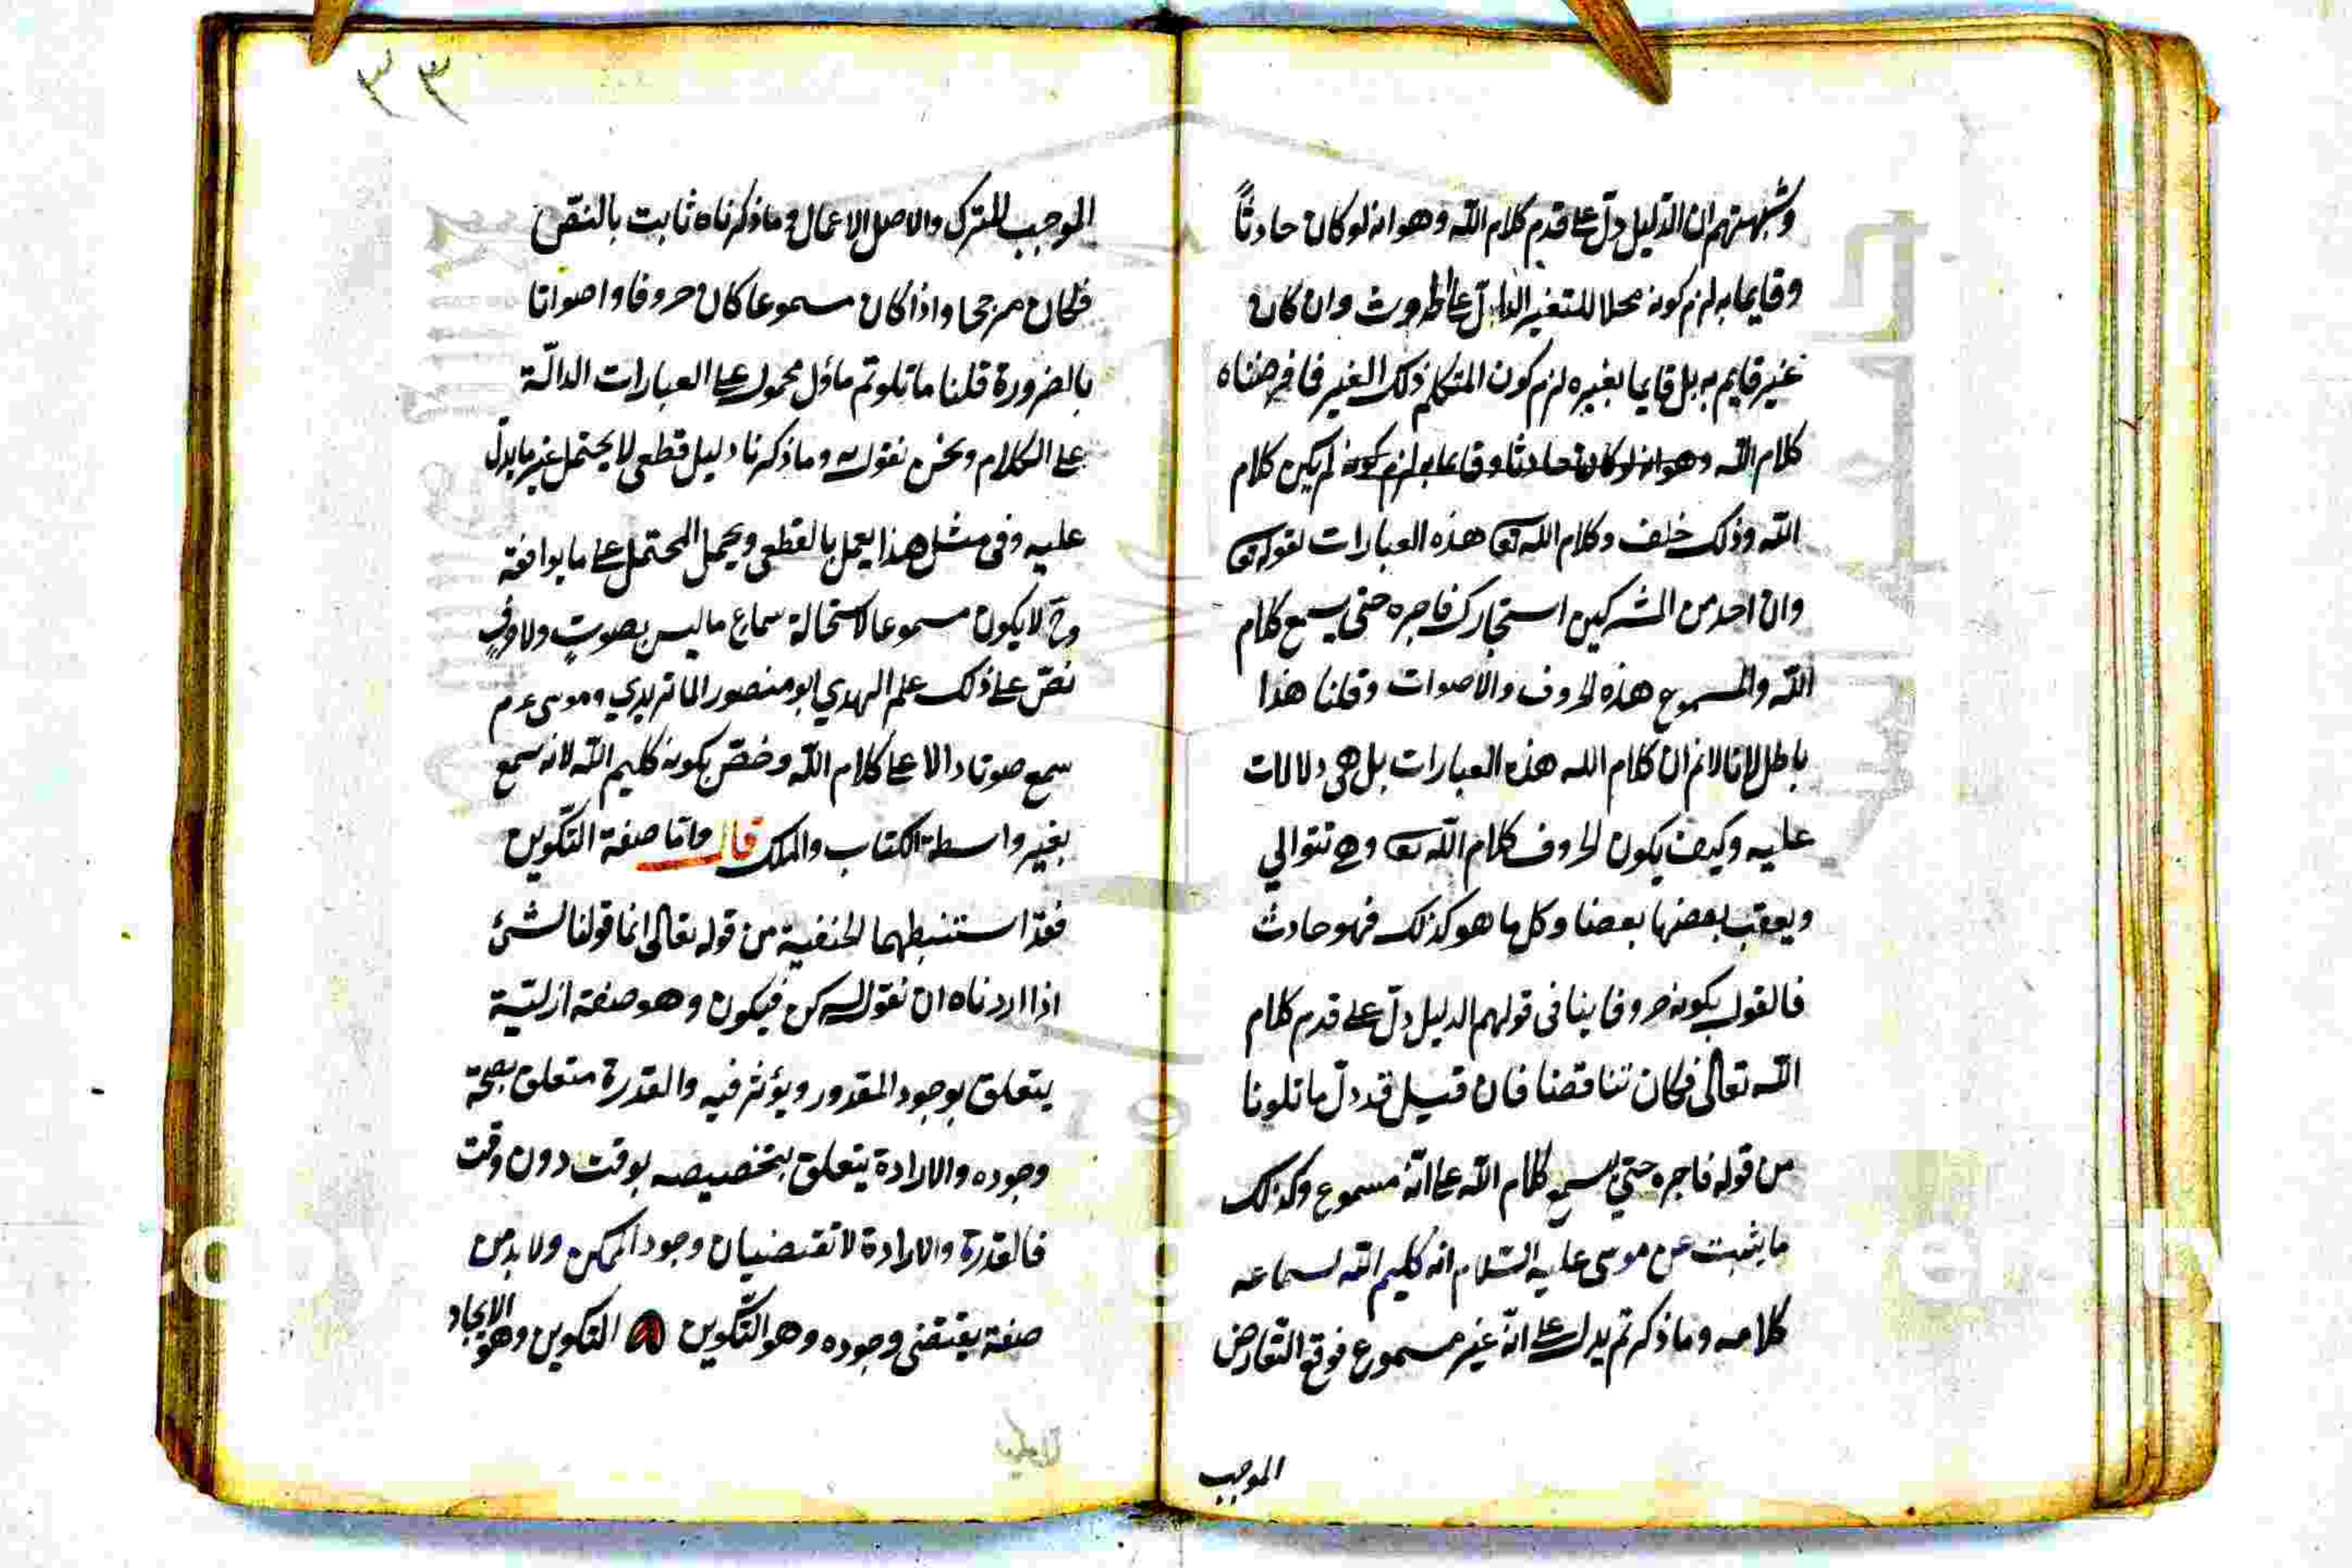 وشبهتهم ان الدليل دلّ على قدم كلام الله وهو انه لو كان حادثاً
وقايما به لزم كونه محلا للتغير الدالّ على الحدوث وان كان
غير قايم به بل قايما بغيره لزم كون المتكلم ذلك الغير فما فرضناه
كلام الله وهو انه لو كان حادثا وقايما به لزم كونه لم يكن كلام
الله وذلك خلف وكلام الله تعا هذه العبارات لقوله تعا
وان احد من المشركين استجارك فاجره حتى يسمع كلام
الله والمسموع هذه الحروف والاصوات وقلنا هذا
باطل لانا لانم ان كلام الله هذه العبارات بل هى دلالات
عليه وكيف يكون الحروف كلام الله تعا وهى تتوالي
ويعقب بعضها بعضا وكل ما هو كذلك فهو حادث
فالقول بكونه حروفا ينافى قولهم الدليل دلّ على قدم كلام
الله تعالى فكان تناقضا فان قيل قد دلّ ما تلونا
من قوله فاجره حتي يسمع كلام الله على انّه مسموع وكذلك
ما يثبت عن موسى عليه السّلام انه كليم الله لسماعه
كلامه وما ذكرتم يدل على انّه غير مسموع فوقع التّعارض
الموجب
٣٣
الموجب للترك والاصل الاعمال وما ذكرناه ثابت بالنقص
فكان مرجحا واذا كان مسموعا كان حروفا واصواتا
بالضرورة قلنا ما تلوتم ماؤل محمول على العبارات الدالّة
على الكلام ونحن نقول به وما ذكرنا دليل قطعى لا يحتمل غير ما يدلّ
عليه وفى مثل هذا يعمل بالقطعى ويحمل المحتمل على ما يوافقه
وح لا يكون مسموعا لاستحالة سماع ما ليس بصوتٍ ولا حرفٍ
نصّ على ذلك علم الهدي ابو منصور الماتريدي وموسى عم
سمع صوتا دالا على كلام الله وخصّ بكونه كليم الله لانه سمع
بغير واسطة الكتاب والملك قال وامّا صفة التّكوين
فقد استنبطها الحنفية من قوله تعالى انما قولنا لشئ
اذا اردناه ان نقول له كن فيكون وهو صفة ازليّة
يتعلق بوجود المقدور ويؤثر فيه والقدرة متعلق بصحّة
وجوده والارادة يتعلق بتخصيصه بوقت دون وقت
فالقدرة والارادة لا تقتضيان وجود الممكن ولا بد من
صفة يقتضى وجوده وهو التّكوين التكوين وهو الايجاد